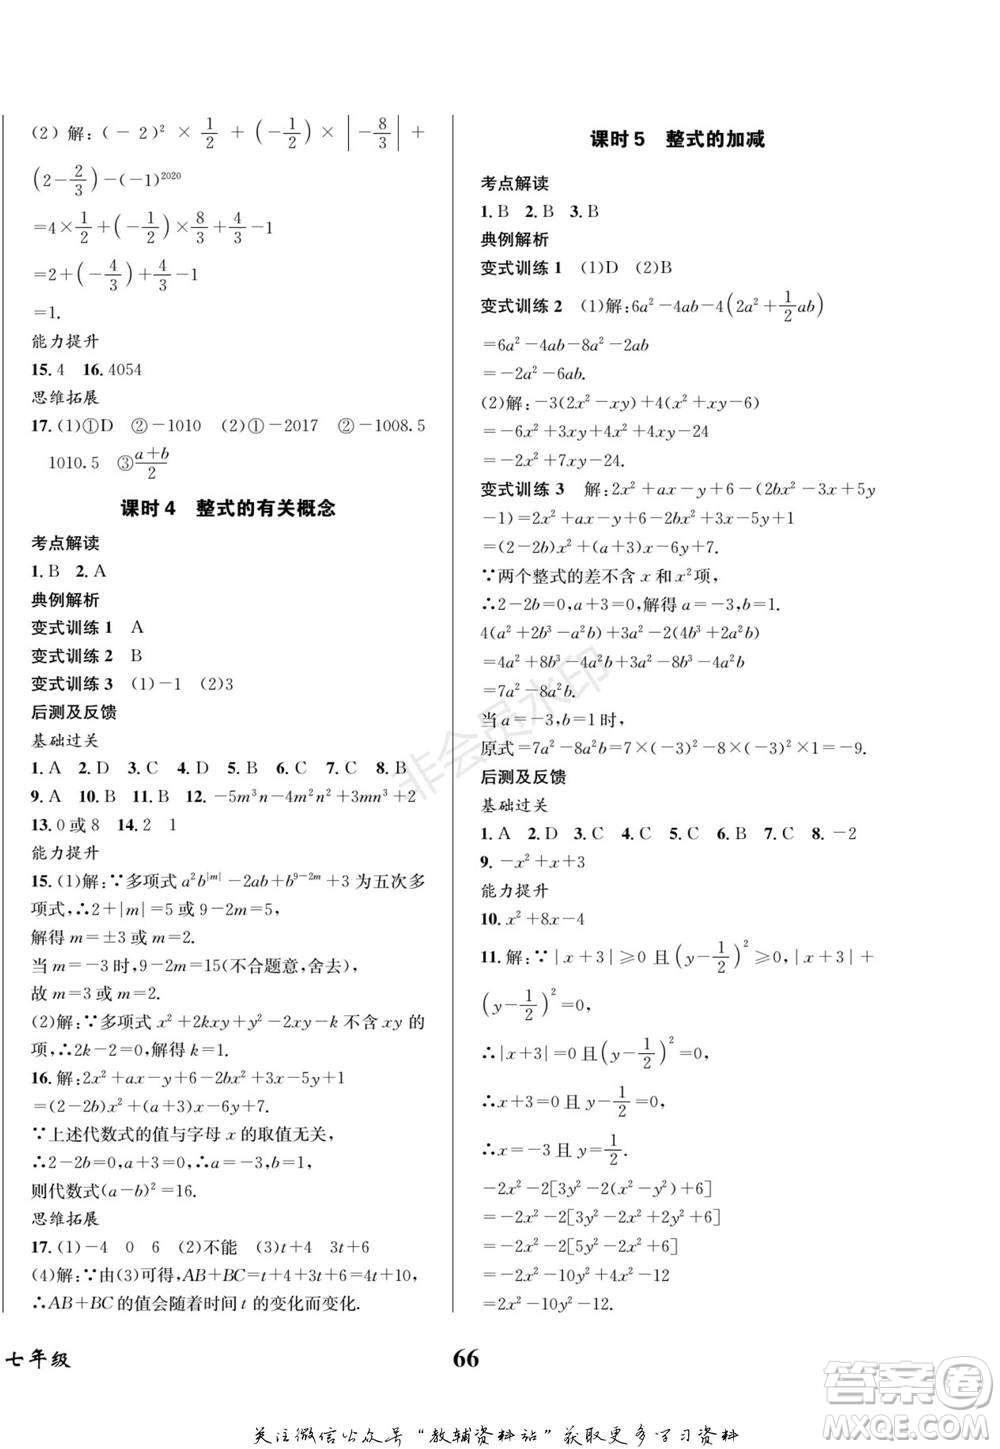 (2)解:(-2)²×1/2+(-1/2)×|-8/3|+
(2-2/3)-(-1)²⁰²⁰
=4×1/2+(-1/2)×8/3+4/3-1
=2+(-4/3)+4/3-1
=1.
能力提升
15.4 16.4054
思维拓展
17.(1)①D ②-1010 (2)①-2017 ②-1008.5
1010.5 ③(a+b)/2
课时4 整式的有关概念
考点解读
1.B 2.A
典例解析
变式训练1 A
变式训练2 B
变式训练3 (1)-1 (2)3
后测及反馈
基础过关
1.A 2.D 3.C 4.D 5.B 6.C 7.C 8.B
9.A 10.B 11.B 12.-5m³n-4m²n²+3mn³+2
13.0或8 14.2 1
能力提升
15.(1)解:∵多项式a²b^|m|-2ab+b^(9-2m)+3为五次多
项式,∴2+|m|=5或9-2m=5,
解得m=±3或m=2.
当m=-3时,9-2m=15(不合题意,舍去),
故m=3或m=2.
(2)解:∵多项式x²+2kxy+y²-2xy-k不含xy的
项,∴2k-2=0,解得k=1.
16.解:2x²+ax-y+6-2bx²+3x-5y+1
=(2-2b)x²+(a+3)x-6y+7.
∵上述代数式的值与字母x的取值无关,
∴2-2b=0,a+3=0,∴a=-3,b=1,
则代数式(a-b)²=16.
思维拓展
17.(1)-4 0 6 (2)不能 (3)t+4 3t+6
(4)解:∵由(3)可得,AB+BC=t+4+3t+6=4t+10,
∴AB+BC的值会随着时间t的变化而变化.
课时5 整式的加减
考点解读
1.B 2.B 3.B
典例解析
变式训练1 (1)D (2)B
变式训练2 (1)解:6a²-4ab-4(2a²+1/2ab)
=6a²-4ab-8a²-2ab
=-2a²-6ab.
(2)解:-3(2x²-xy)+4(x²+xy-6)
=-6x²+3xy+4x²+4xy-24
=-2x²+7xy-24.
变式训练3 解:2x²+ax-y+6-(2bx²-3x+5y
-1)=2x²+ax-y+6-2bx²+3x-5y+1
=(2-2b)x²+(a+3)x-6y+7.
∵两个整式的差不含x和x²项,
∴2-2b=0,a+3=0,解得a=-3,b=1,
4(a²+2b³-a²b)+3a²-2(4b³+2a²b)
=4a²+8b³-4a²b+3a²-8b³-4a²b
=7a²-8a²b.
当a=-3,b=1时,
原式=7a²-8a²b=7×(-3)²-8×(-3)²×1=-9.
后测及反馈
基础过关
1.A 2.D 3.C 4.C 5.C 6.B 7.C 8.-2
9.-x²+x+3
能力提升
10.x²+8x-4
11.解:∵|x+3|≥0且(y-1/2)²≥0,|x+3|+
(y-1/2)²=0,
∴|x+3|=0且(y-1/2)²=0,
∴x+3=0且y-1/2=0,
∴x=-3且y=1/2.
-2x²-2[3y²-2(x²-y²)+6]
=-2x²-2[3y²-2x²+2y²+6]
=-2x²-2[5y²-2x²+6]
=-2x²-10y²+4x²-12
=2x²-10y²-12.
七年级
66
关注微信公众号“教辅资料站”获取更多学习资料
非会员水印
答案圈
MXQE.COM